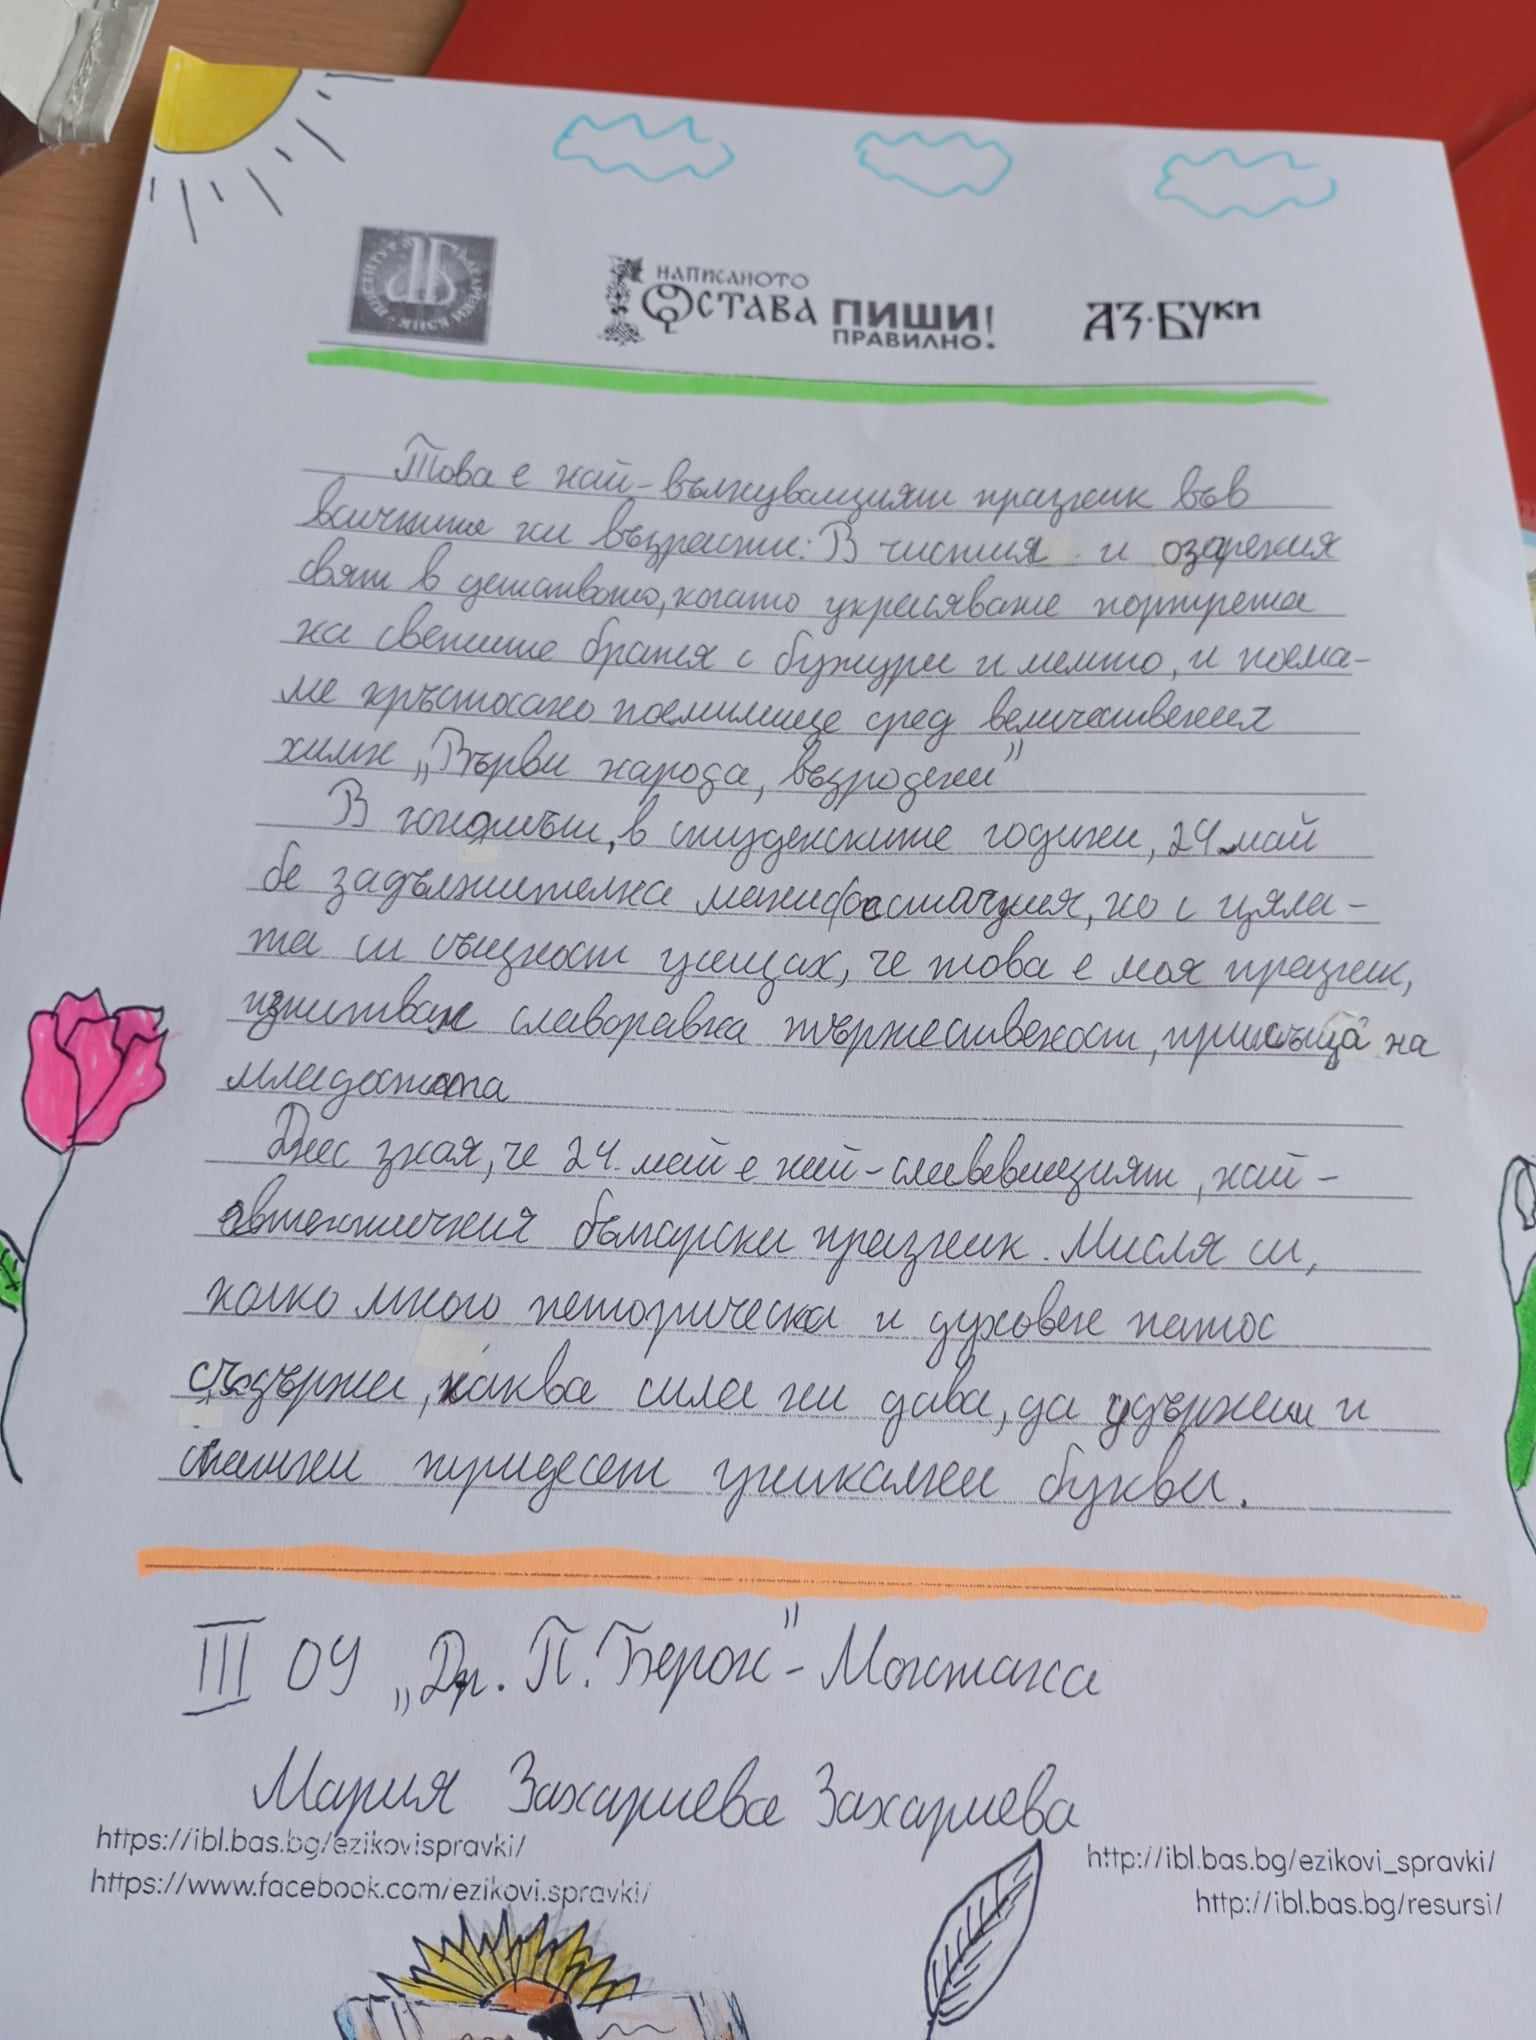 НАПИСАНОТО
ОСТАВА ПИШИ!
ПРАВИЛНО.
АЗ·БУКИ
Това е най-вълнуващият празник във
всичките ни възрасти: В чистия и озарения
свят в детството, когато украсяваме портрета
на светите братя с божури и лято, и поема-
ме кръстосано поемилище сред величествения
химн „Върви народа, възродени"
В юношът, в студенските години, 24 май
бе задължителна манифестация, но с цяла-
та си същност усещах, че това е моя празник,
изпитвах славоравна тържественост, присъща на
младостта
Днес зная, че 24 май е най-славевищият, най-
автентичния български празник. Мисля си,
колко много петорическа и духовен патос
съдържа, каква сила ни дава, да удържим и
опазим тридесет уникални букви.
III ОУ „Др. П. Берон" - Монтана
Мария Захариева Захариева
https://ibl.bas.bg/ezikovispravki/
https://www.facebook.com/ezikovi.spravki/
http://ibl.bas.bg/ezikovi_spravki/
http://ibl.bas.bg/resursi/